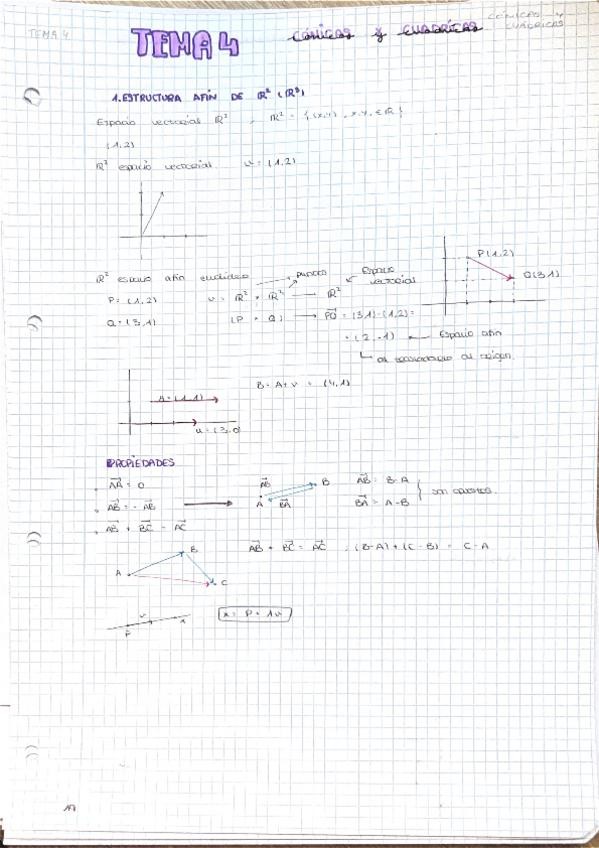 TEMA 4
CÓNICAS Y
CUÁDRICAS
TEMA 4 cónicas y cuádricas
1. ESTRUCTURA AFÍN DE ℝ² (ℝ³)
Espacio vectorial ℝ² , ℝ² = {(x,y), x,y ∈ ℝ}
(1,2)
ℝ² espacio vectorial v = (1,2)
P(1,2)
Q(3,1)
ℝ² espacio afín euclídeo
puntos
Espacio vectorial
P = (1,2) v = ℝ² × ℝ² → ℝ²
Q = (3,1) (P × Q) → PQ = (3,1) - (1,2) =
= (2,-1) ← Espacio afín
al origen
A = (1,1) B = A + v = (4,1)
u = (3,0)
PROPIEDADES
. AA = 0
. AB = - AB
. AB + BC = AC
AB B
A BA
AB = B-A
BA = A-B
son opuestos.
A B C
AB + BC = AC , (B-A) + (C-B) = C-A
P v x
x = P + λv